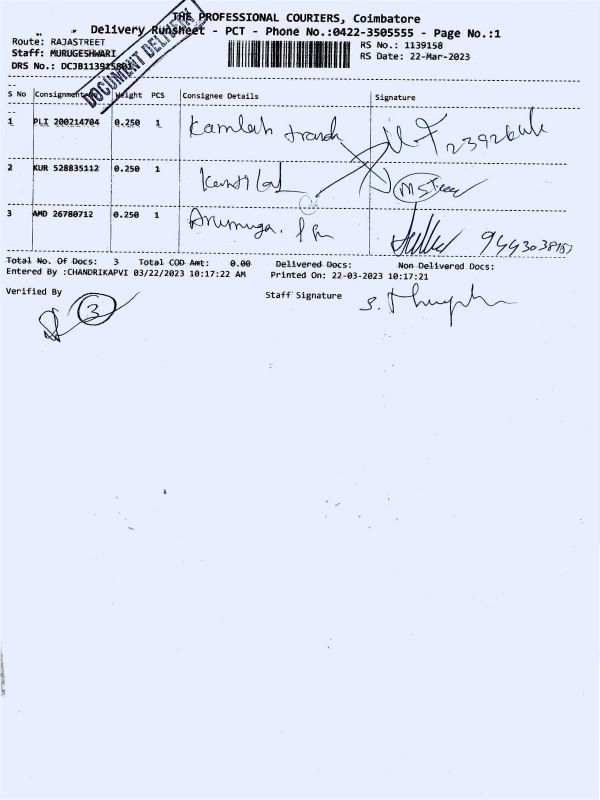 THE PROFESSIONAL COURIERS, Coimbatore
Delivery Runsheet - PCT - Phone No.:0422-3505555 - Page No.:1
Route: RAJASTREET
RS No.: 1139158
Staff: MURUGESHWARI
RS Date: 22-Mar-2023
DRS No.: DCJB1139158
DOCUMENT DELIVERY
S No Consignment Weight PCS Consignee Details Signature
1 PLI 200214704 0.250 1 Kamlah
2 KUR 528835112 0.250 1 Kantilal
3 AMD 26780712 0.250 1 Arumuga.
Total No. Of Docs: 3 Total COD Amt: 0.00 Delivered Docs: Non Delivered Docs:
Entered By :CHANDRIKAPVI 03/22/2023 10:17:22 AM Printed On: 22-03-2023 10:17:21
Verified By Staff Signature
3